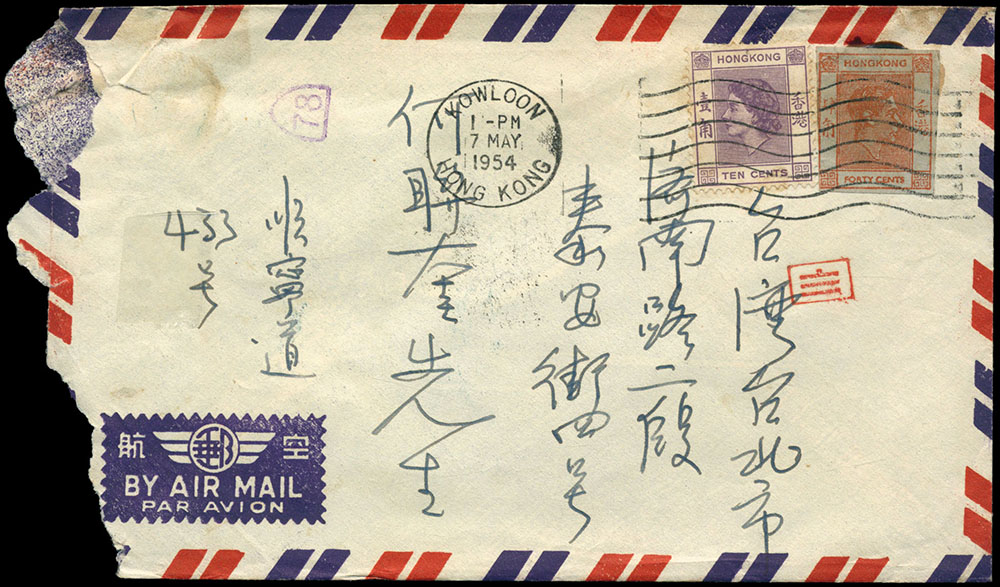 HONGKONG
壹角
香港
TEN CENTS
HONGKONG
FORTY CENTS
KOWLOON
1 -PM
7 MAY
1954
HONG KONG
78
台湾台北市
济南路二段
泰安街四号
何联奎先生
順寧道
号
航 郵 空
BY AIR MAIL
PAR AVION